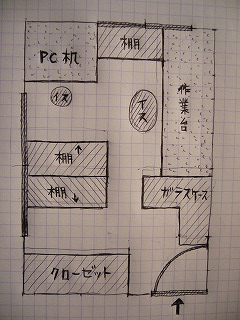 棚
PC机
イス
イス
作業台
棚↑
棚↓
ガラスケース
クローゼット
↑